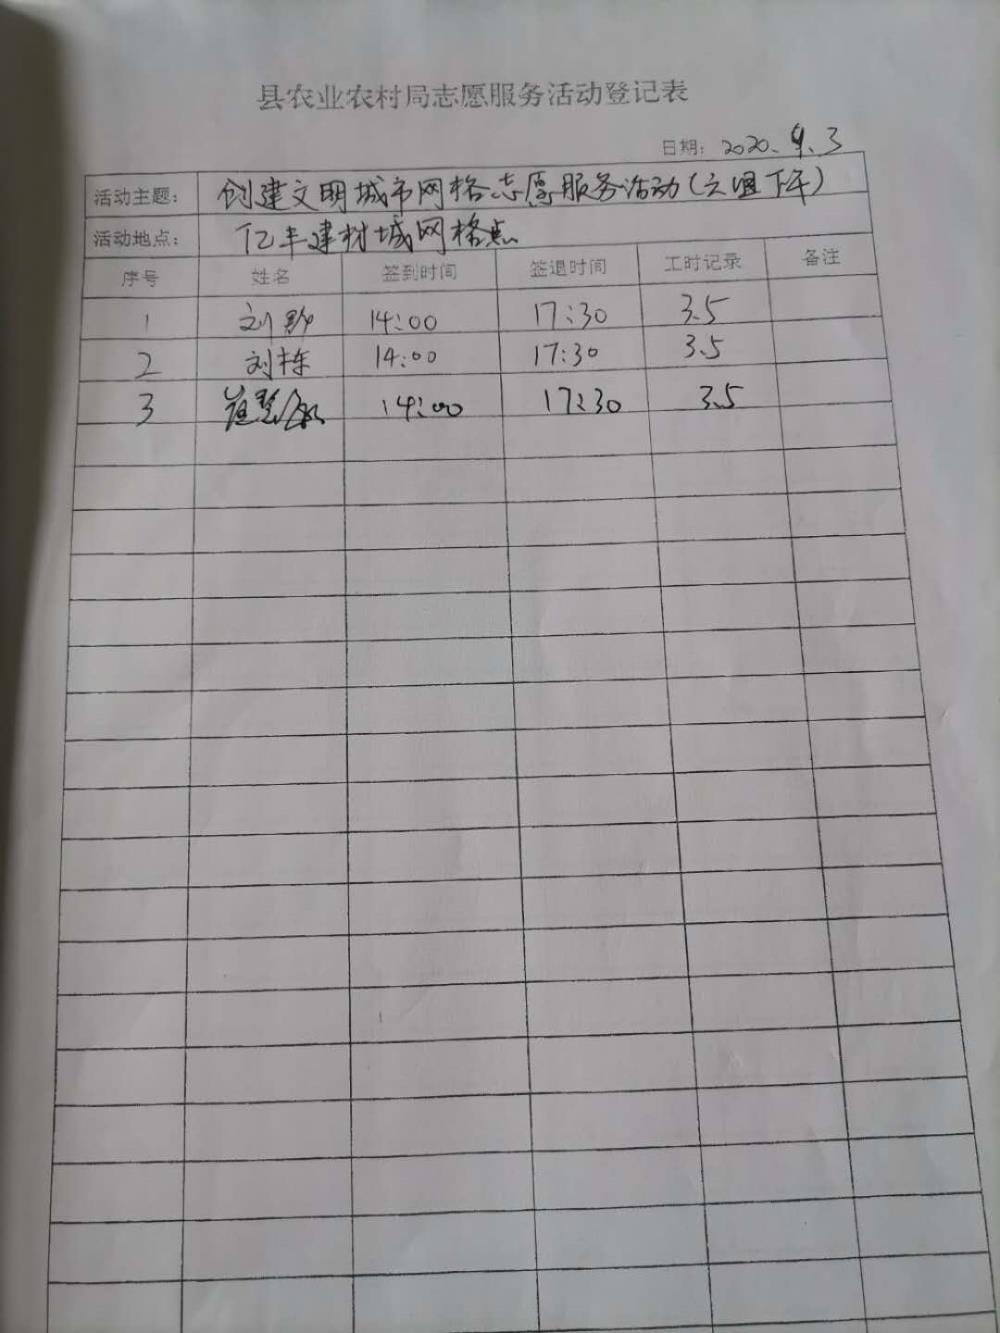 县农业农村局志愿服务活动登记表
日期: 2020.9.3
活动主题: 创建文明城市网格志愿服务活动(六组下午)
活动地点: 亿丰建材城网格点
序号 姓名 签到时间 签退时间 工时记录 备注
1 刘 14:00 17:30 3.5
2 刘栋 14:00 17:30 3.5
3 14:00 17:30 3.5